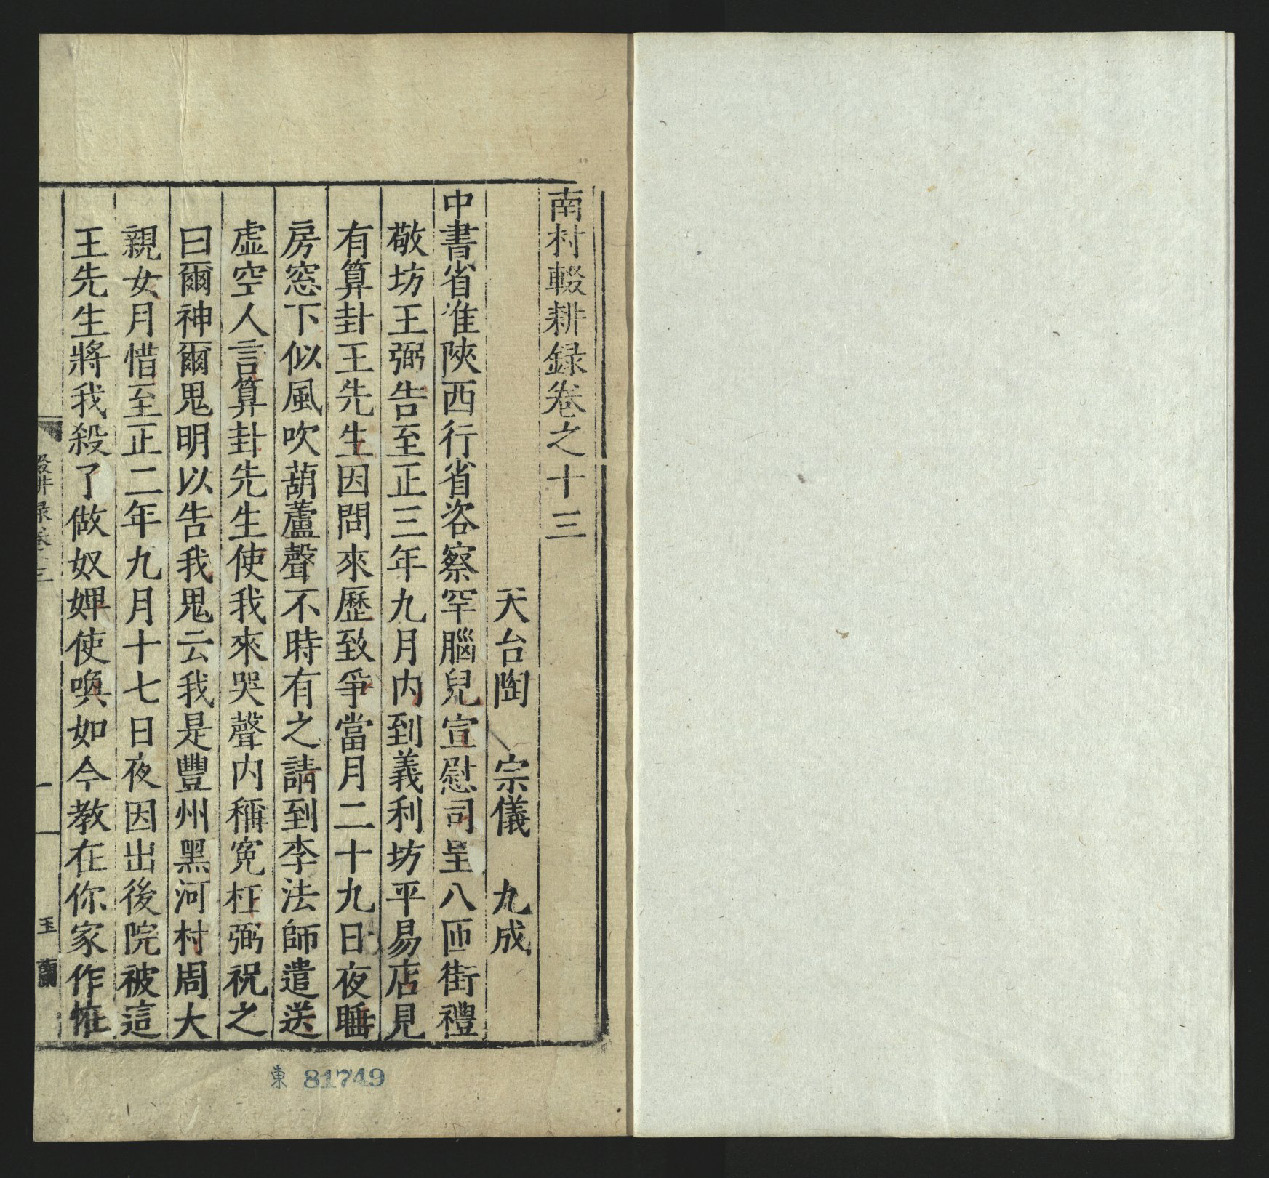 南村輟耕録卷之十三
天台陶　宗儀　九成
中書省准陝西行省咨察罕腦兒宣慰司呈八匝街禮
敬坊王弼告至正三年九月内到義利坊平易店見
有算卦王先生因問來歷致爭當月二十九日夜睡
房窓下似風吹葫蘆聲不時有之請到李法師遣送
虚空人言算卦先生使我來哭聲内稱寃枉弼祝之
曰爾神爾鬼明以告我鬼云我是豐州黑河村周大
親女月惜至正二年九月十七日夜因出後院被這
王先生將我殺了做奴婢使喚如今教在你家作怪
輟耕録卷十三
一
玉
東 81749